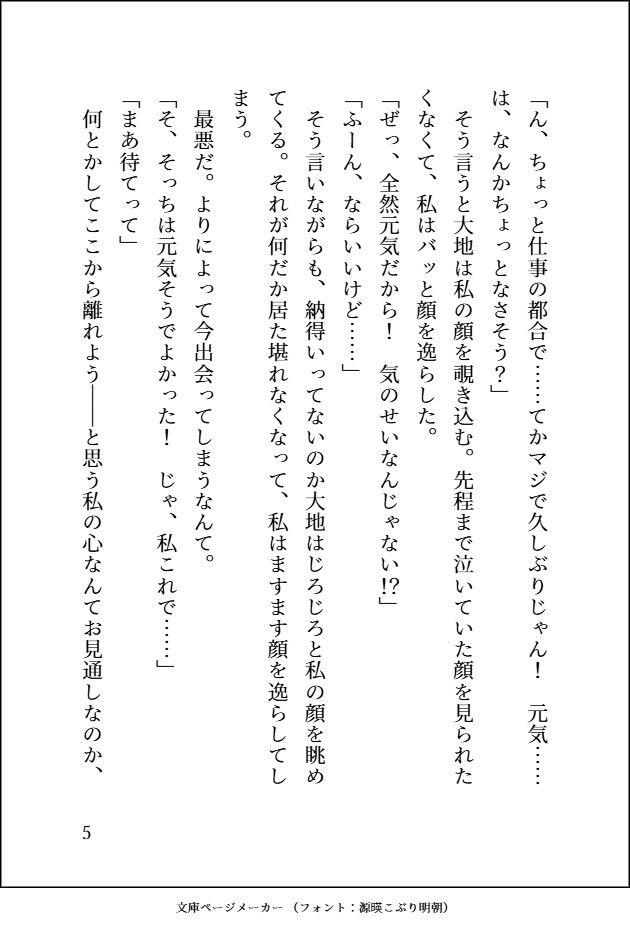 「ん、ちょっと仕事の都合で……てかマジで久しぶりじゃん！　元気……
は、なんかちょっとなさそう？」
　そう言うと大地は私の顔を覗き込む。先程まで泣いていた顔を見られた
くなくて、私はバッと顔を逸らした。
「ぜっ、全然元気だから！　気のせいなんじゃない!?」
「ふーん、ならいいけど……」
　そう言いながらも、納得いってないのか大地はじろじろと私の顔を眺め
てくる。それが何だか居た堪れなくなって、私はますます顔を逸らしてし
まう。
　最悪だ。よりによって今出会ってしまうなんて。
「そ、そっちは元気そうでよかった！　じゃ、私これで……」
「まあ待てって」
　何とかしてここから離れよう――と思う私の心なんてお見通しなのか、
5
文庫ページメーカー（フォント：源暎こぶり明朝）